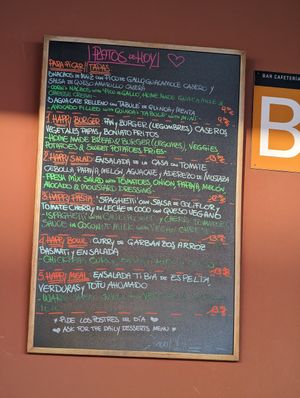 PLATOS DE HOY!
PARA PICAR/TAPAS
NACHOS DE MAÍZ CON PICO DE GALLO, GUACAMOLE CASERO Y
SALSA DE QUESO AMARILLO CASERA
- CORN NACHOS WITH PICO DE GALLO, HOME MADE GUACAMOLE &
CHEESE CREAM -
AGUACATE RELLENO CON TABULÉ DE QUINOA Y MENTA
- AVOCADO FILLED WITH TABULÉ QUINOA & MINT -
1 HAPPY BURGER PAN Y BURGER (LEGUMBRES) CASEROS
VEGETALES, PAPAS, BONIATO FRITOS
- HOME MADE BREAD & BURGER (LEGUMES), VEGGIES
POTATOES & SWEET POTATOES FRIES -
2 HAPPY SALAD ENSALADA DE LA CASA CON TOMATE
CEBOLLA, PAPAYA, MELÓN, AGUACATE, ADEREZO DE MOSTAZA
- FRESH MIX SALAD WITH TOMATOES, ONION, PAPAYA, MELON,
AVOCADO & MOUSTARD DRESSING
3 HAPPY PASTA SPAGHETTI CON SALSA DE COLIFLOR
TOMATE CHERRY EN LECHE DE COCO CON QUESO VEGANO
- SPAGHETTI WITH CAULIFLOWER & CHERRY TOMATOES
SAUCE IN COCONUT MILK WITH VEGAN CHEESE
4 HAPPY BOWL CURRY DE GARBANZOS, ARROZ
BASMATI Y ENSALADA
5 HAPPY MEAL ENSALADA TIBIA DE ESPELTA
VERDURAS Y TOFU AHUMADO
PIDE LOS POSTRES DEL DÍA
ASK FOR THE DAILY DESSERTS MENU
BAR CAFETERÍA
B